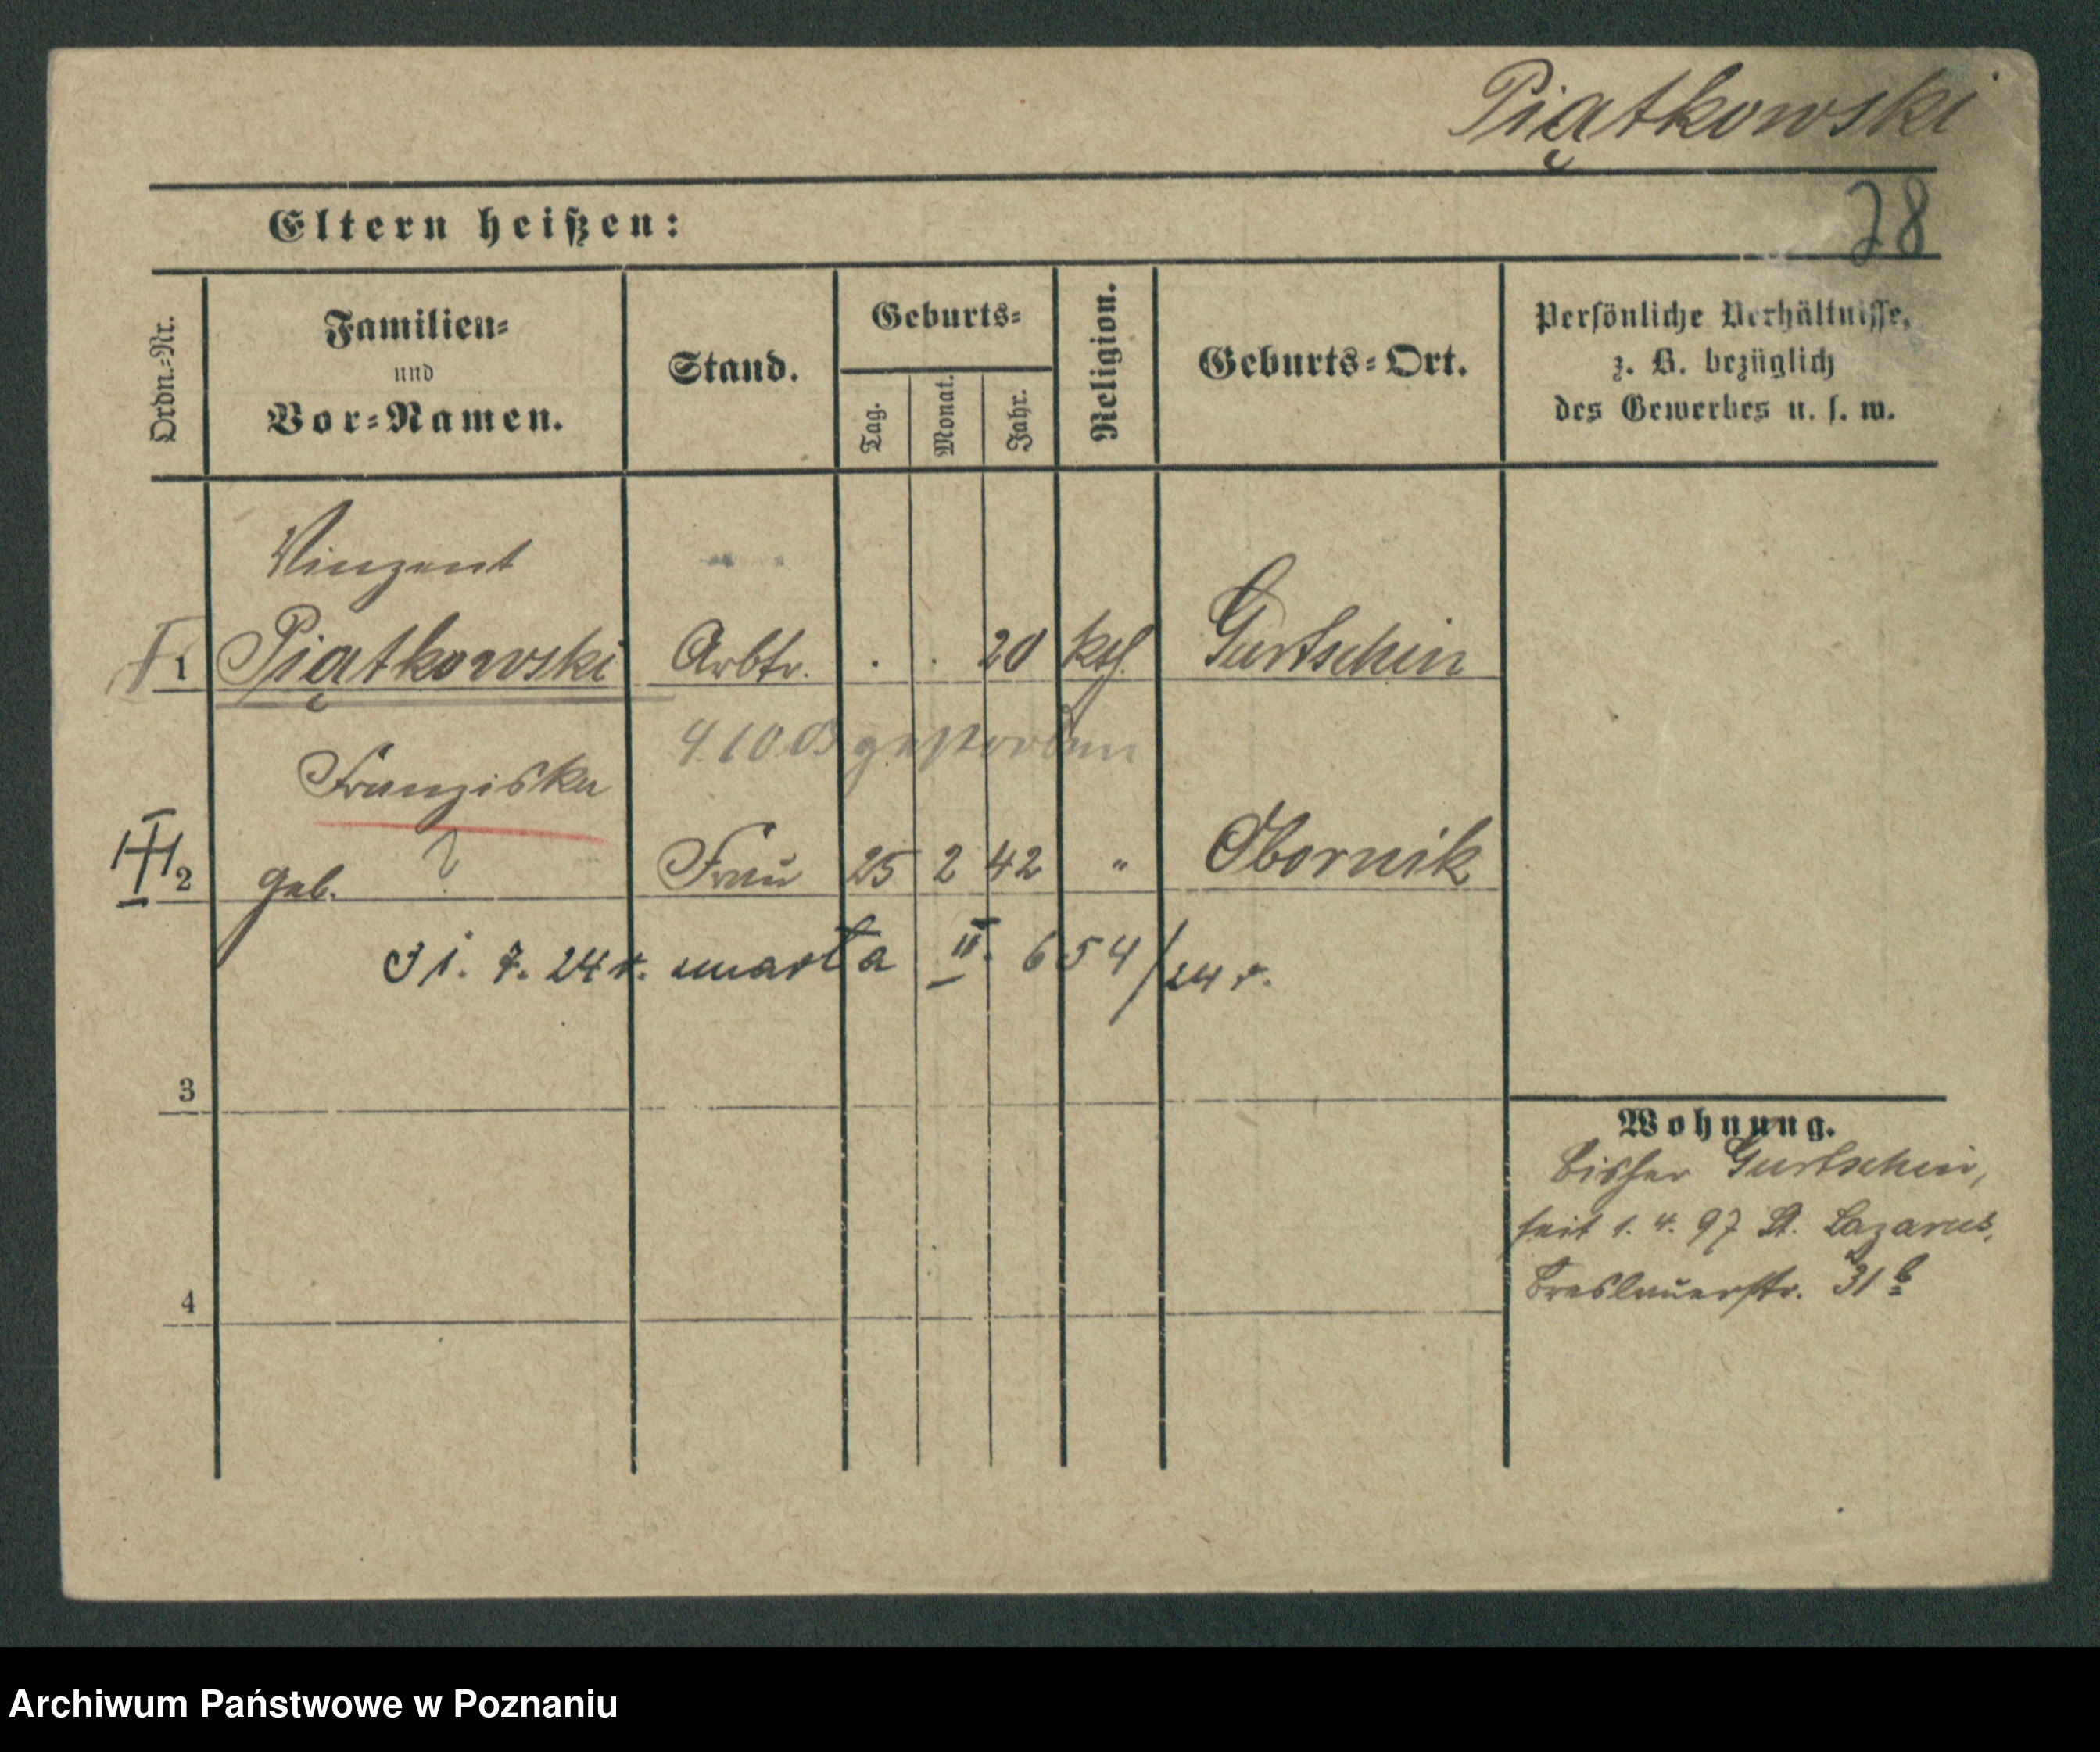 Piątkowski
Eltern heißen:
28
Ordn.-Nr.
Familien-
und
Vor-Namen.
Stand.
Geburts-
Tag.
Monat.
Jahr.
Religion.
Geburts-Ort.
Persönliche Verhältnisse,
z. B. bezüglich
des Gewerbes u. s. w.
Vinzent
1 Piątkowski Arbtr. . . 20 kth. Gurtschin
4.10.03 gestorben
Franziska
2 geb. ? Frau 25 2 42 " Obornik
31. 7. 24 r. umarła II. 654/24 r.
3
Wohnung.
bisher Gurtschin,
seit 1. 4. 97 St. Lazarus,
Breslauerstr. 31 b
4
Archiwum Państwowe w Poznaniu